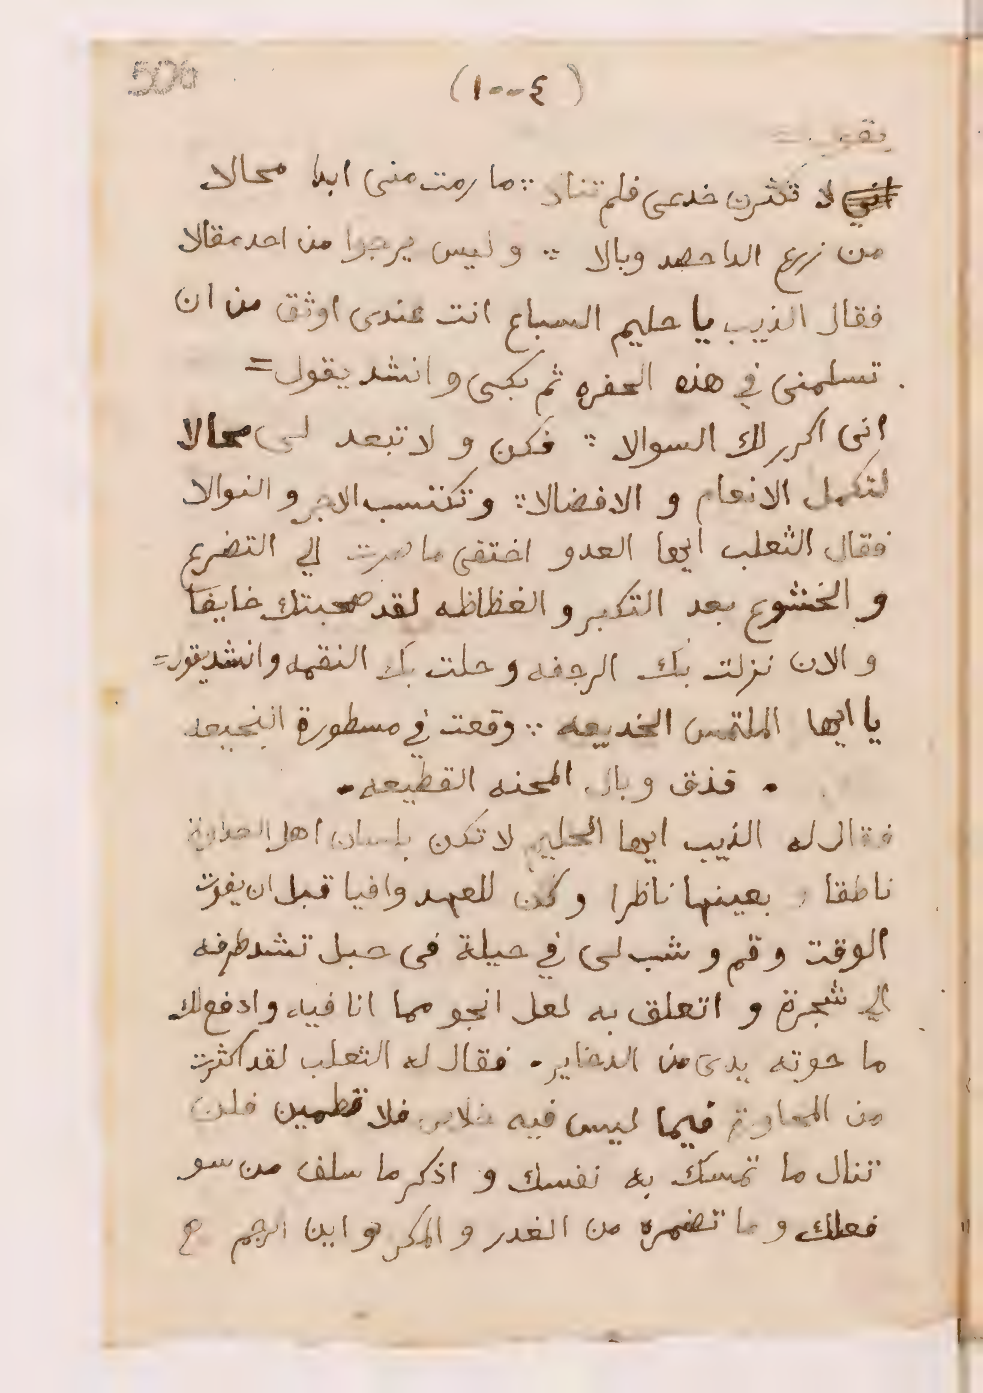 506
(١٠٠٤)
يقول =
لا تكثرن خدعى فلم تنال ؞ ما رمت منى ابدا محالا
من زرع الدا حصد وبالا ؞ وليس يرجوا من احد مقالا
فقال الذيب يا حليم السباع انت عندى اوثق من ان
تسلمنى في هذه الحفره ثم بكى وانشد يقول =
انى اكرر لك السوالا ؞ فكن ولا تبعد لى محالا
لتكمل الانعام و الافضالا ؞ وتكتسب الاجر و النوالا
فقال الثعلب ايها العدو اختفى ما صرت الي التضريع
و الخشوع بعد التكبر و الغظاظه لقد صحبتك خايفا
و الان نزلت بك الرجفه وحلت بك النقمه وانشد يقول =
يا ايها الملتمس الخديعه ؞ وقعت في مسطورة
. فذق وبال المحنه القطيعه .
فقال له الذيب ايها الحليم لا تكن بلسان اهل العداوة
ناطقا و بعينها ناظرا وكن للعهد وافيا قبل ان يفوت
الوقت وقم وشب لى في حيلة فى حبل تشد طرفه
الي شجرة و اتعلق به لعل انجو مما انا فيه وادفع لك
ما حوته يدى من الدخاير . فقال له الثعلب لقد اكثرت
من المحاورة فيما ليس فيه خلاص فلا تطمين فلن
تنال ما تمسك به نفسك و اذكر ما سلف من سو
فعلك وما تضمره من الغدر و المكر و اين الرجم